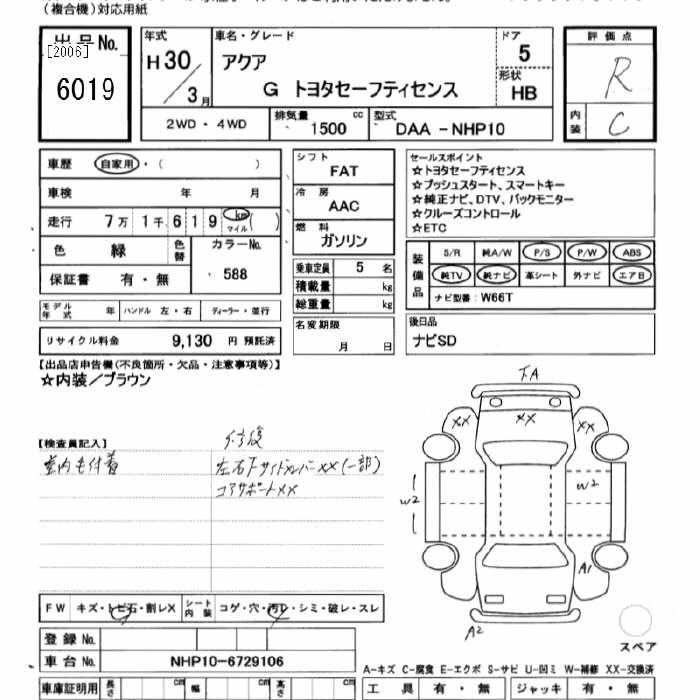 (複合機)対応用紙
出品No.
[2006]
6019
年式
H30/3月
車名・グレード
アクア
G トヨタセーフティセンス
ドア
5
形状
HB
評価点
R
内装
C
2WD・4WD
排気量
1500 cc
型式
DAA-NHP10
車歴 自家用・( )
車検 年 月
走行 7万1千619 km マイル( )
色 緑 色替
カラーNo.
588
保証書 有・無
モデル年式 年 ハンドル 左・右 ディーラー・並行
リサイクル料金 9,130 円 預託済
シフト
FAT
冷房
AAC
燃料
ガソリン
乗車定員 5 名
積載量 kg
総重量 kg
名変期限
月 日
セールスポイント
☆トヨタセーフティセンス
☆プッシュスタート、スマートキー
☆純正ナビ、DTV、バックモニター
☆クルーズコントロール
☆ETC
装備品
S/R 純A/W P/S P/W ABS
純TV 純ナビ 革シート 外ナビ エアB
ナビ型番: W66T
後日品
ナビSD
【出品店申告欄(不良箇所・欠品・注意事項等)】
☆内装/ブラウン
【検査員記入】
室内毛付着
修復
左右Fサイドメンバー××(一部)
コアサポート××
FA
×× ×× ××
W2 W2
A1
A2
スペア
FW キズ・トビ石・割レX シート内装 コゲ・穴・汚レ・シミ・破レ・スレ
登録No.
車台No. NHP10-6729106
車庫証明用 長さ cm 幅 cm 高さ cm
A-キズ C-腐食 E-エクボ S-サビ U-凹ミ W-補修 XX-交換済
工具 有・無 ジャッキ 有・無